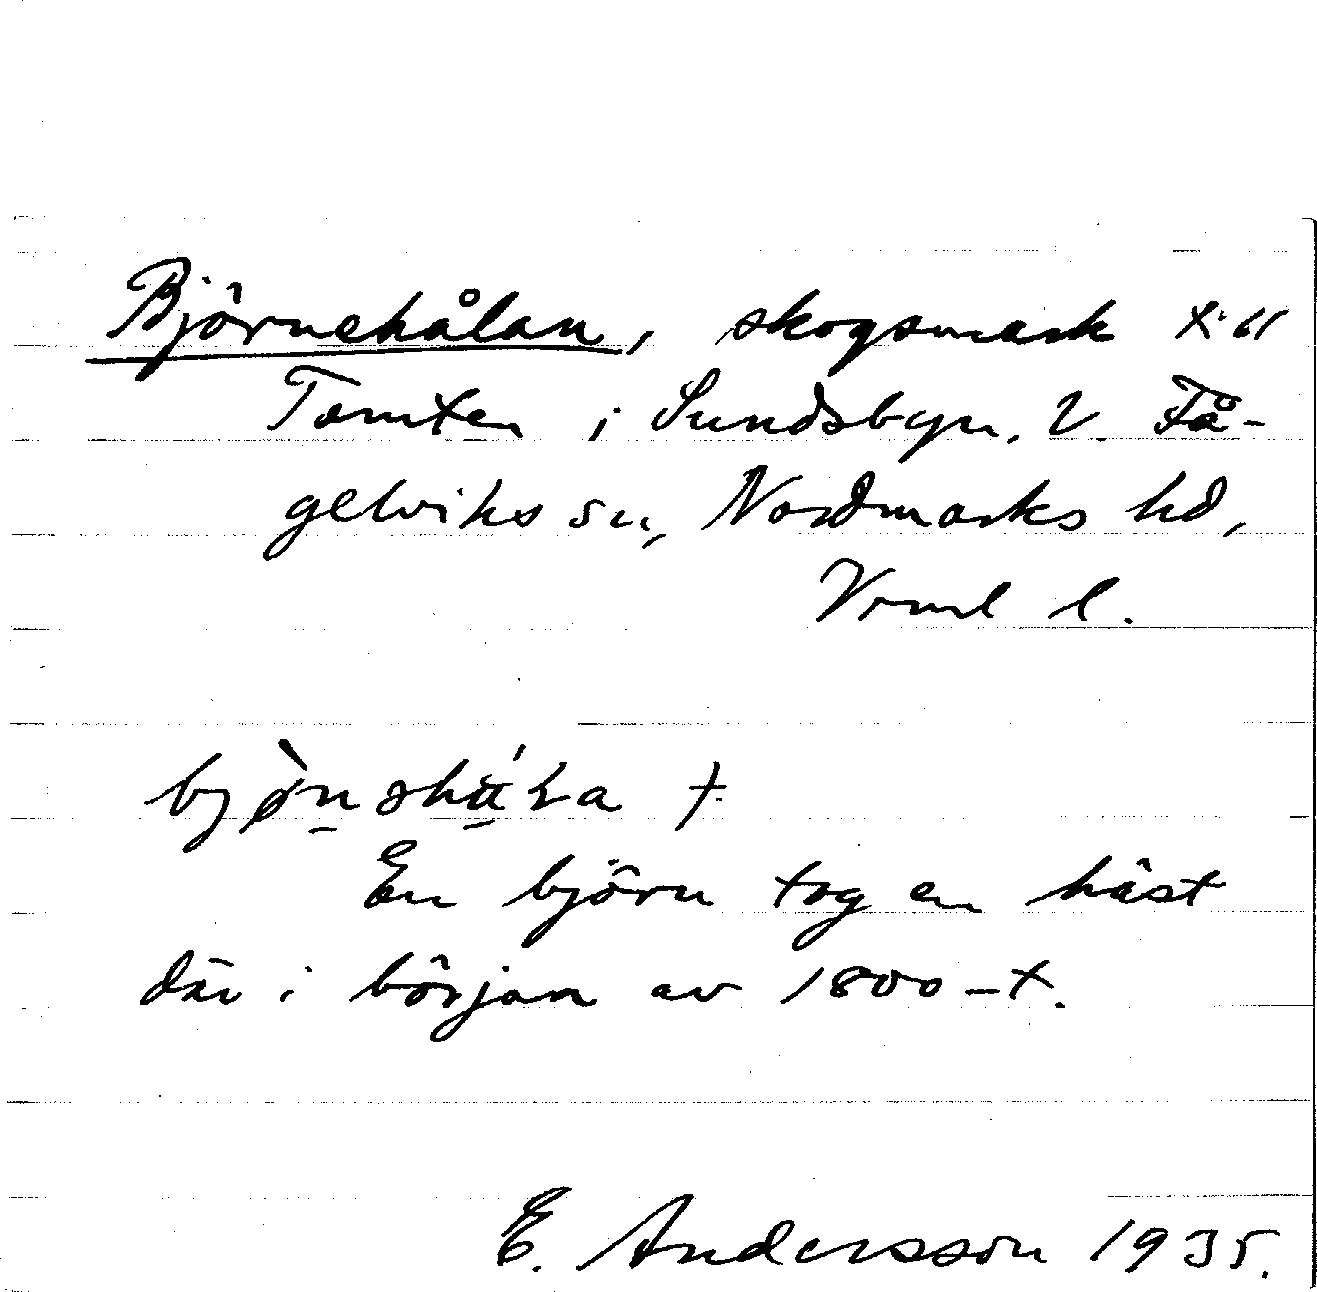 Björnehålan, skogsmark till
Tomten i Sundsbyn, V. Få-
gelviks sn, Nordmarks hd,
Vrml l.
f.
En björn tog en häst
där i början av 1800-t.
E. Andersson 1935.